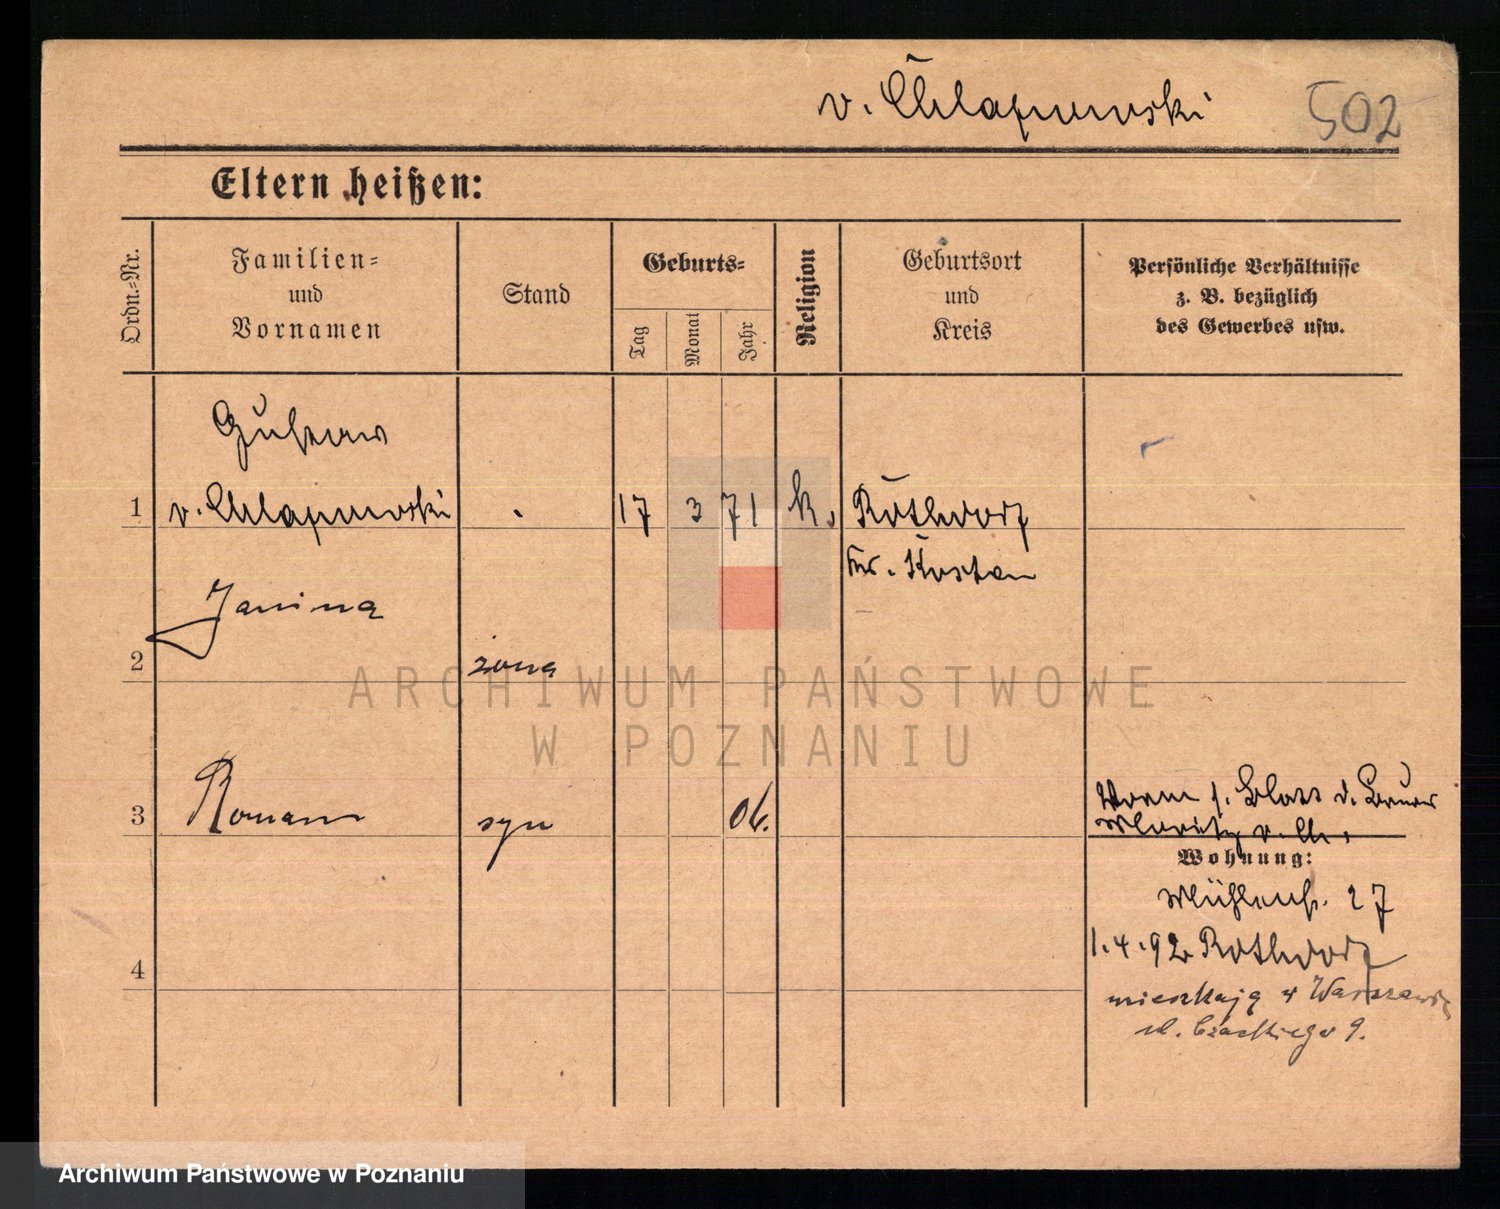 v. Chlapowski 502
Eltern heißen:
Ordn.-Nr.
Familien-
und
Vornamen
Stand
Geburts-
Tag
Monat
Jahr
Religion
Geburtsort
und
Kreis
Persönliche Verhältnisse
z. B. bezüglich
des Gewerbes usw.
Gustaw
1 v. Chlapowski 17 3 71 k. Rothdorf
Kr. Kosten
Janina
2 żona
3 Roman syn 06.
Worm s. Blatt d. Bruder
Moritz v. Ch.
Wohnung:
Mühlenst. 27
4
1.4.92 Rothdorf
mieszkają w Warszawie
ul. Czackiego 9.
ARCHIWUM PAŃSTWOWE
W POZNANIU
Archiwum Państwowe w Poznaniu